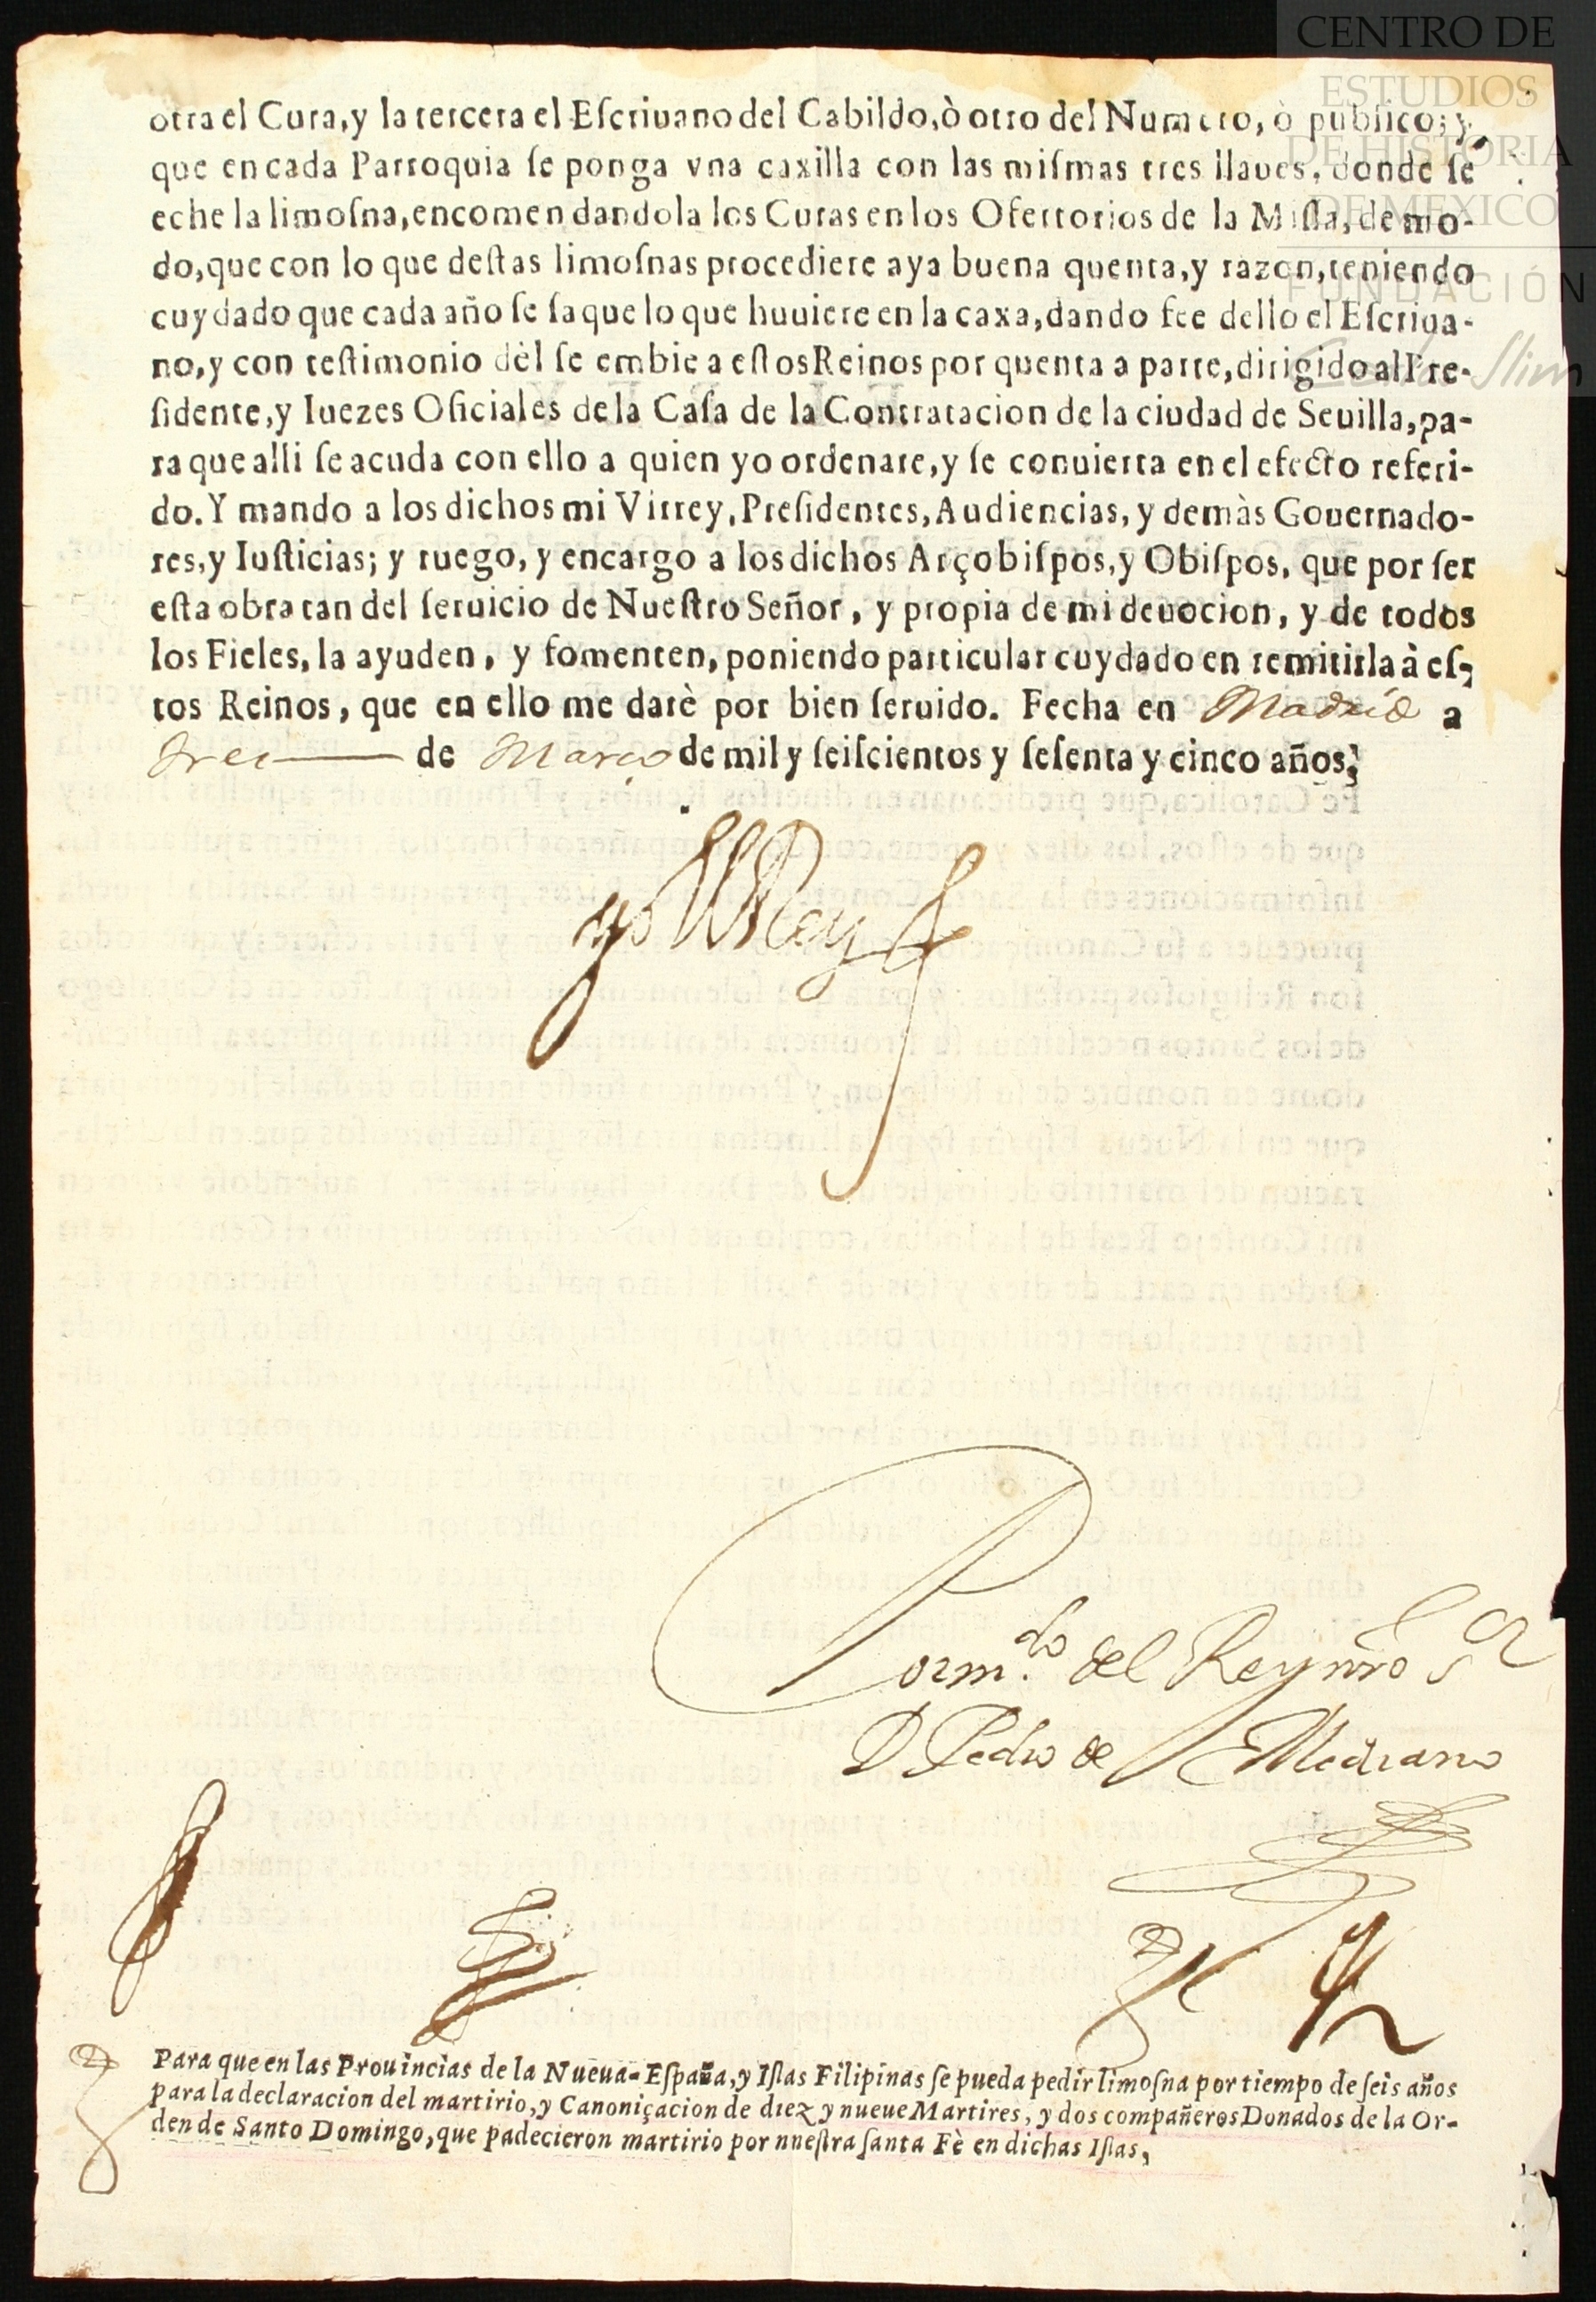 CENTRO DE
ESTUDIOS
DE HISTORIA
DE MEXICO
FUNDACIÓN
Carlos Slim
otra el Cura, y la tercera el Eſcriuano del Cabildo, ò otro del Numero, ò publico; y
que en cada Parroquia ſe ponga vna caxilla con las miſmas tres llaues, donde ſe
eche la limoſna, encomendandola los Curas en los Ofertorios de la Miſſa, de mo-
do, que con lo que deſtas limoſnas procediere aya buena quenta, y razon, teniendo
cuydado que cada año ſe ſaque lo que huuiere en la caxa, dando fee dello el Eſcriua-
no, y con teſtimonio dèl ſe embie a eſtos Reinos por quenta a parte, dirigido al Pre-
ſidente, y Iuezes Oficiales de la Caſa de la Contratacion de la ciudad de Seuilla, pa-
ra que alli ſe acuda con ello a quien yo ordenare, y ſe conuierta en el efecto referi-
do. Y mando a los dichos mi Virrey, Preſidentes, Audiencias, y demàs Gouernado-
res, y Iuſticias; y ruego, y encargo a los dichos Arçobiſpos, y Obiſpos, que por ſer
eſta obra tan del ſeruicio de Nueſtro Señor, y propia de mi deuocion, y de todos
los Fieles, la ayuden, y fomenten, poniendo particular cuydado en remitirla à eſ-
tos Reinos, que en ello me darè por bien ſeruido. Fecha en Madrid a
tres de Março de mil y ſeiſcientos y ſeſenta y cinco años,
yo El Rey
Por m.do del Rey nro s.or
D Pedro de Medrano
Para que en las Prouincias de la Nueua-Eſpaña, y Iſlas Filipinas ſe pueda pedir limoſna por tiempo de ſeis años
para la declaracion del martirio, y Canoniçacion de diez y nueue Martires, y dos compañeros Donados de la Or-
den de Santo Domingo, que padecieron martirio por nueſtra ſanta Fè en dichas Iſlas,